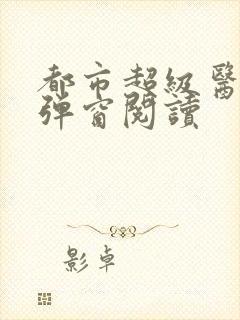 都市超級醫
彈窗閱讀
影卓